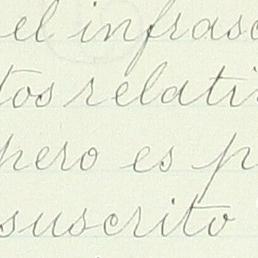 el infrasc
tos relati
pero es p
suscrito